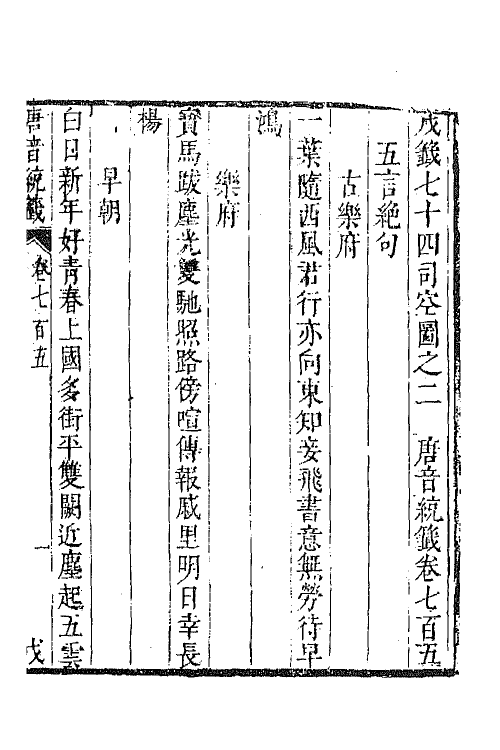 戊籖七十四司空圖之二　唐音統籖卷七百五
五言絶句
古樂府
一葉隨西風君行亦向東知妾飛書意無勞待早
鴻
樂府
寶馬跋塵光雙馳照路傍喧傳報戚里明日幸長
楊
早朝
白日新年好青春上國多街平雙闕近塵起五雲
唐音統籖　卷七百五　一　戊